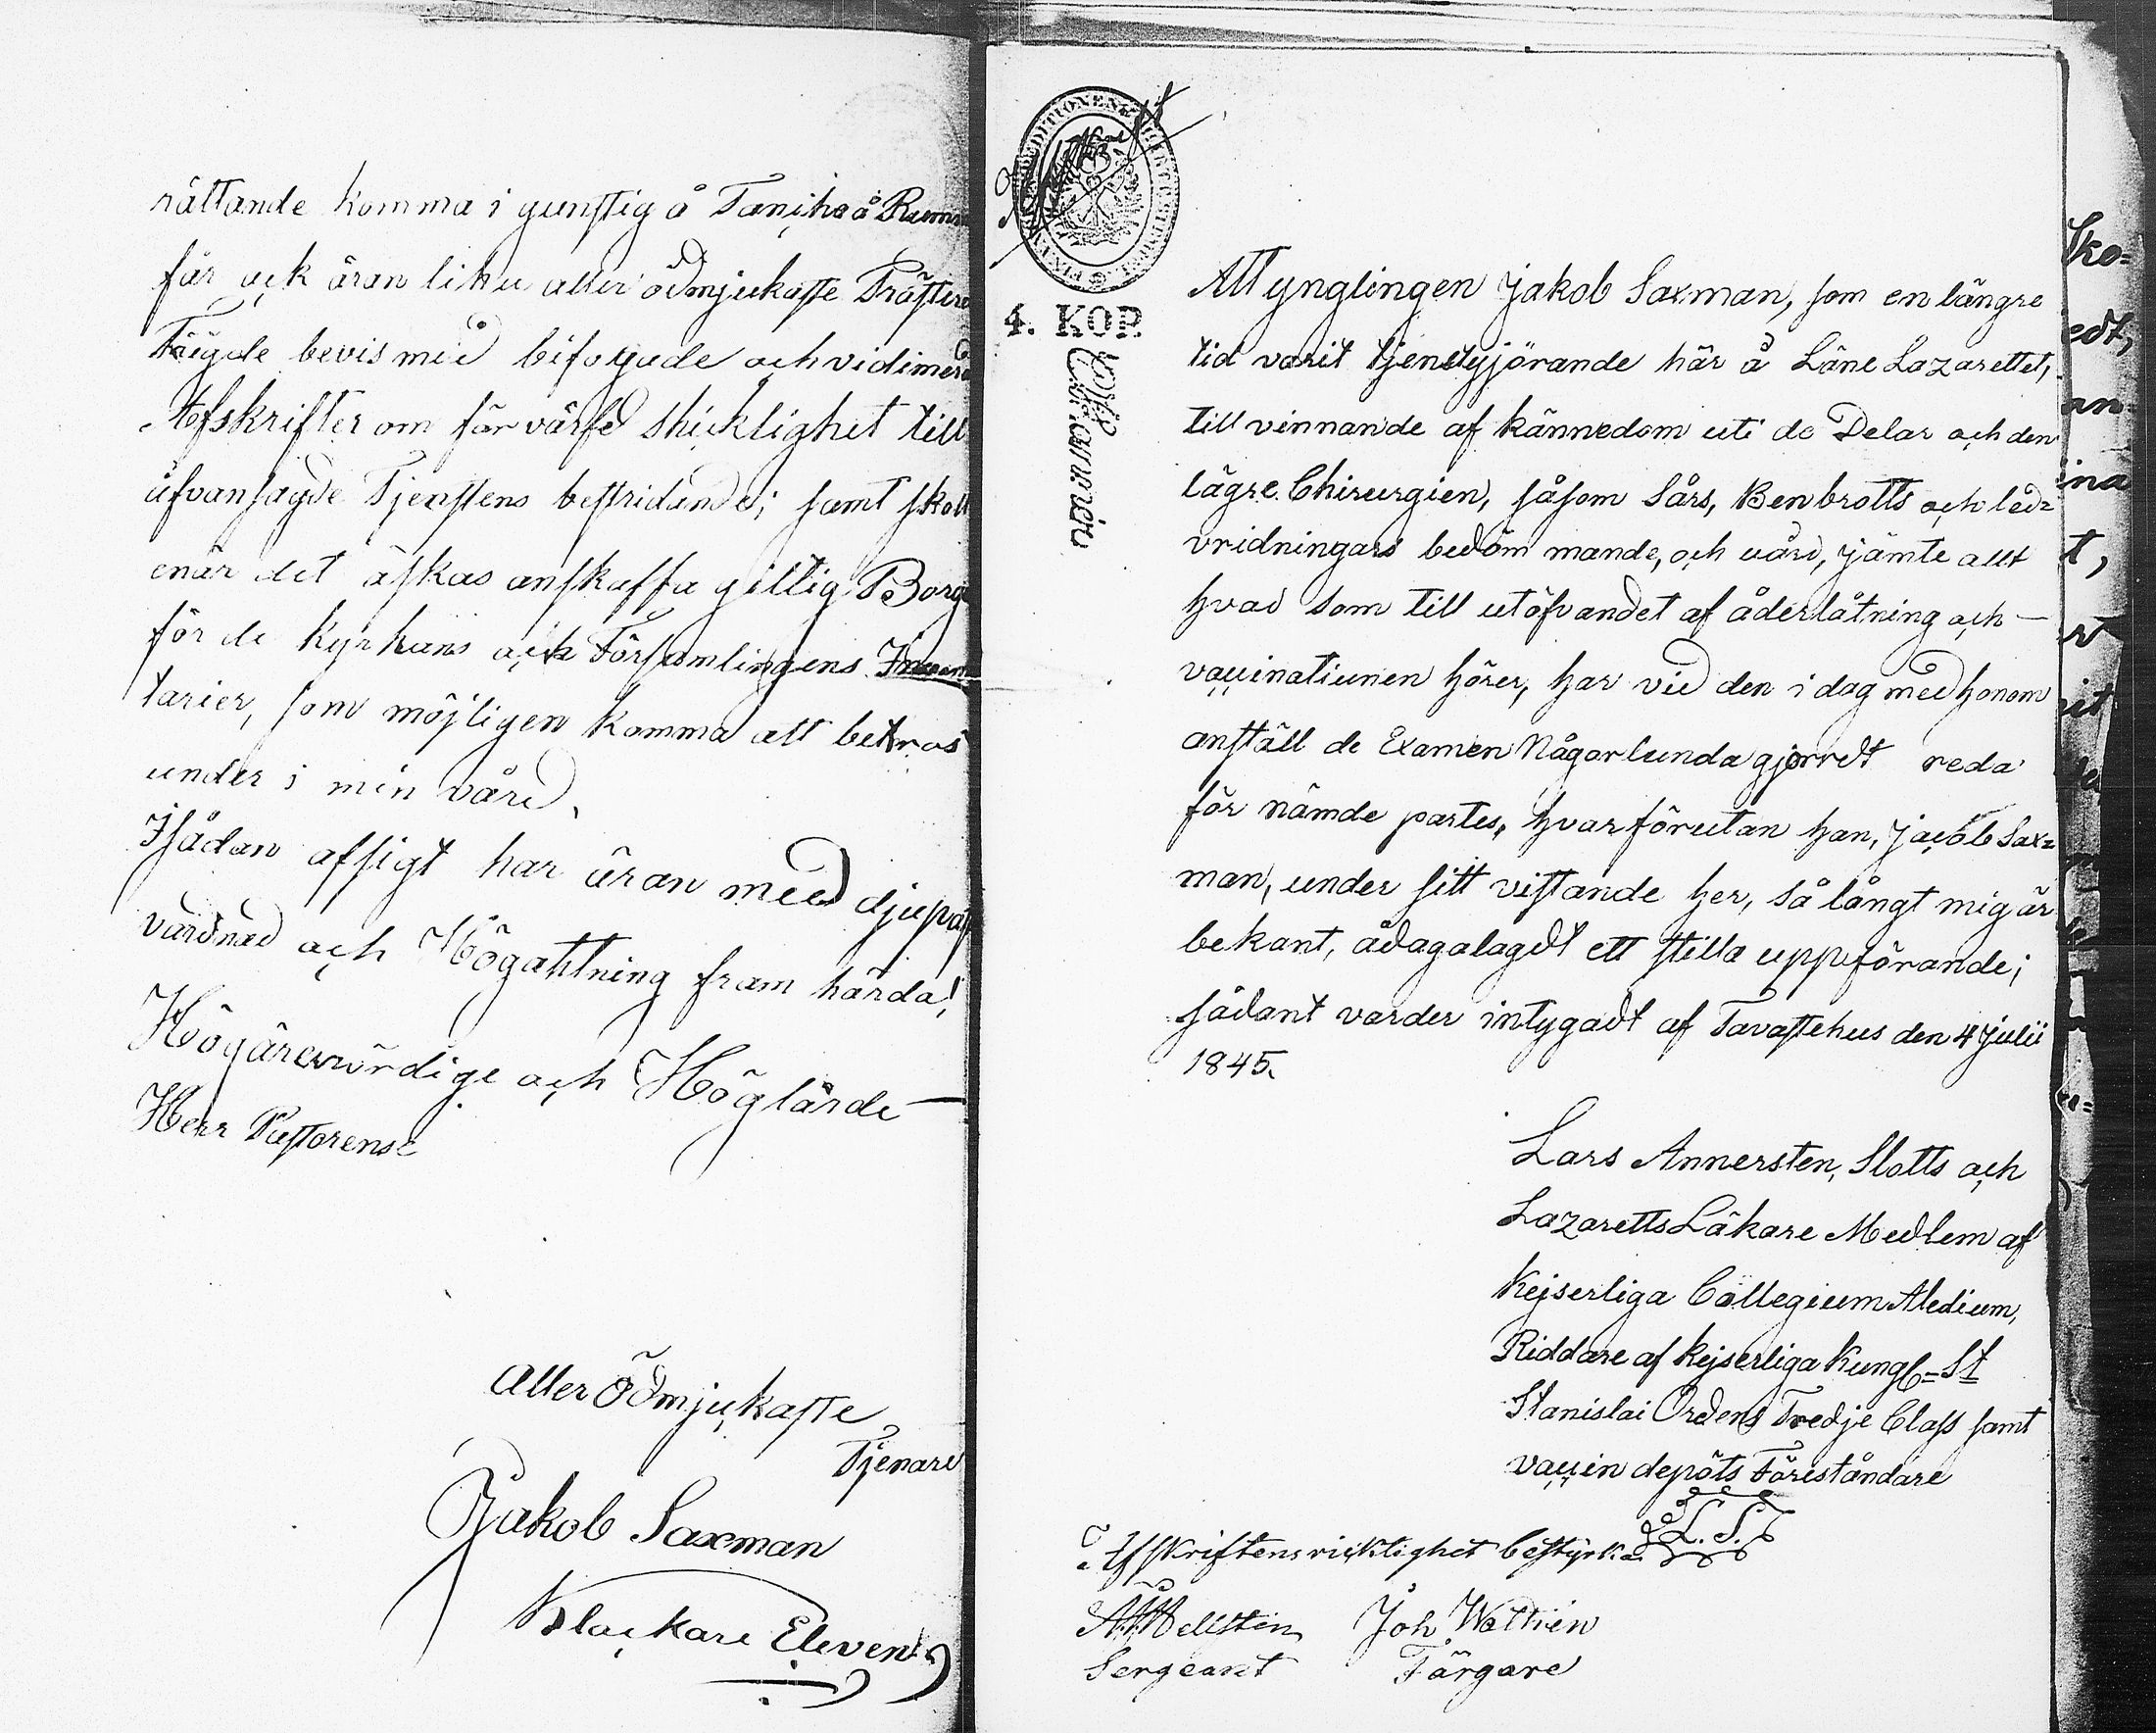 rättande komma i gunstig å Tanke å Rum
får ack äran lika aller ödmjukaste Präst
Tiigde bevis med bifogade och vidimera
Afskrifter om förvärfd skicklighet till
åfvansagde Tjenstens bestridande; samt skall
enär det äskas anskaffa gillig Borge
för de Kyrkans ack Församlingens Inven
tarier, som möjligen komma att betros
under i min vård.
I sådan afsigt har äran med djupas
vördnad och Högaktning fram härda!
Högärevördige och Höglärde
Herr Pastorense
Aller Ödmjukaste
Tjenare
Jakob Saxman
Klackare Eleven
4. KOP.
Charta
Att ynglingen Jakob Saxman, som en längre
tid varit tjenstgjörande här å Läne Lazarettet,
till vinnande af kännedom uti de Delar och den
lägre Chirurgien, såsom Sårs, Benbrotts och led=
vridningars bedömmande, och vård, jämte allt
hvad som till utöfvandet af åderlåtning och
vaccinationen hörer, har vid den i dag med honom
anställde Examen Någorlunda gjordt reda
för nämde partes, hvarförutan han, Jacob Sax=
man, under sitt vistande her, så långt mig är
bekant, ådagalagdt ett stilla uppförande;
sådant varder intygadt af Tavastehus den 4 Julii
1845.
Lars Annersten, Slotts och
Lazaretts Läkare Medlem af
Kejserliga Collegium Medium,
Riddare af Kejserliga Kungl= St
Stanislai Ordens Tredje Class samt
vaccin depôts Föreståndare
L. S.
Afskriftens ricktighet bestyrka
Hellsten Joh Wottien
Sergeant Färgare